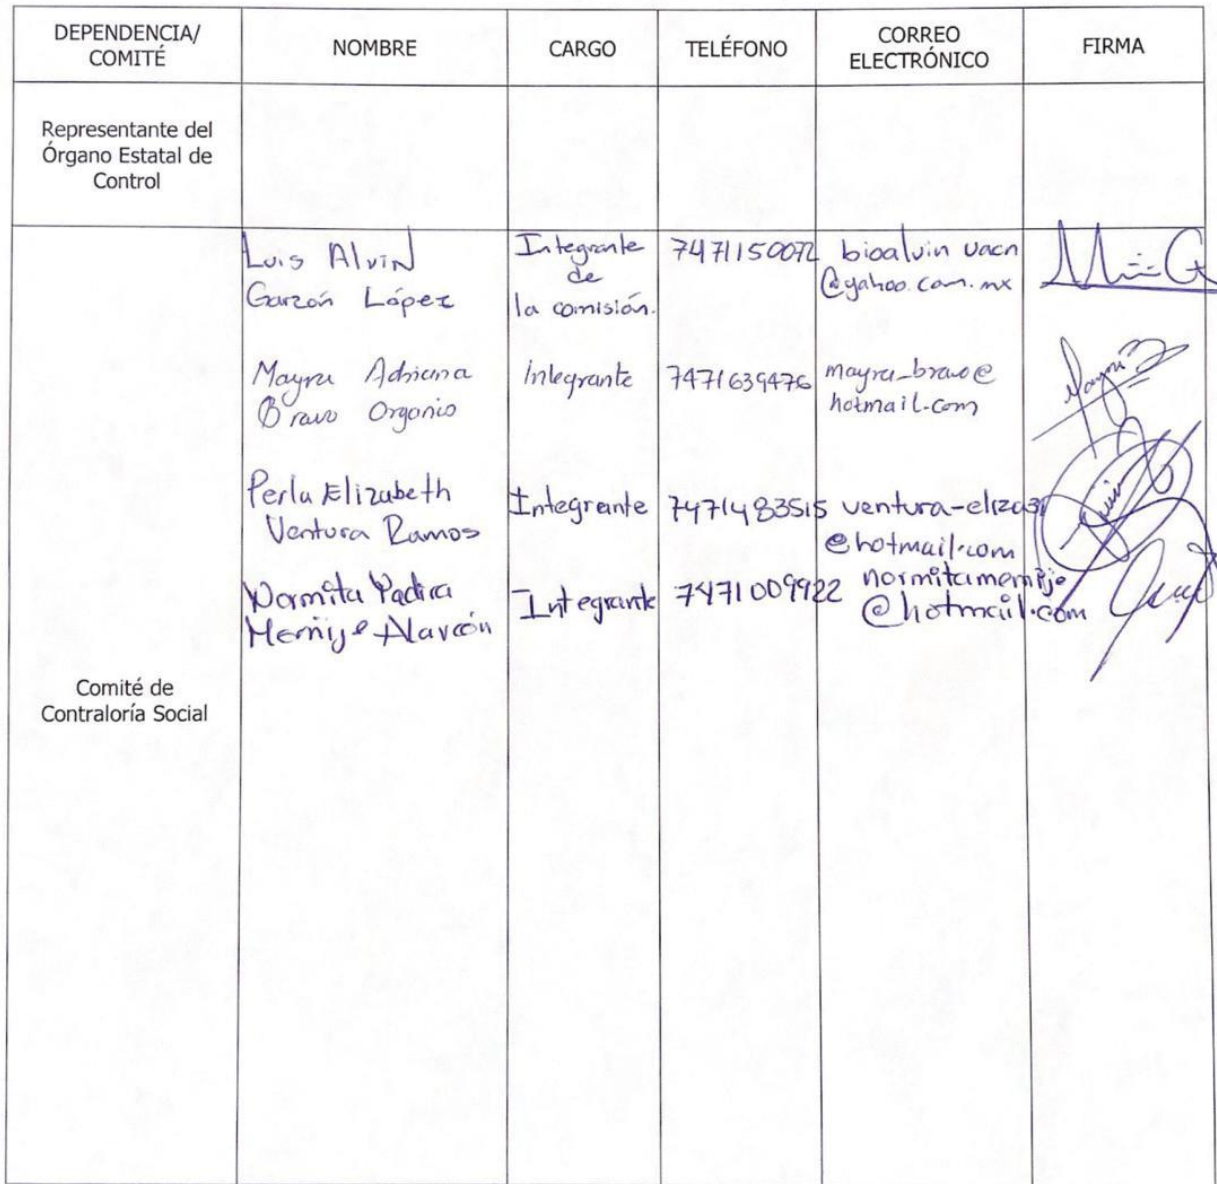 DEPENDENCIA/
COMITÉ
NOMBRE
CARGO
TELÉFONO
CORREO
ELECTRÓNICO
FIRMA
Representante del
Órgano Estatal de
Control
Comité de
Contraloría Social
Luis Alvin
Garzón López
Integrante
de
la comisión.
7471150072
bioalvin uacn
@yahoo.com.mx
Mayra Adriana
Bravo Organis
Integrante
7471639476
mayra_bravo@
hotmail.com
Perla Elizabeth
Ventura Ramos
Integrante
7471483515
ventura-eliza31
@hotmail.com
Normita Yadira
Memije Alarcón
Integrante
7471009922
normitamemije
@hotmail.com